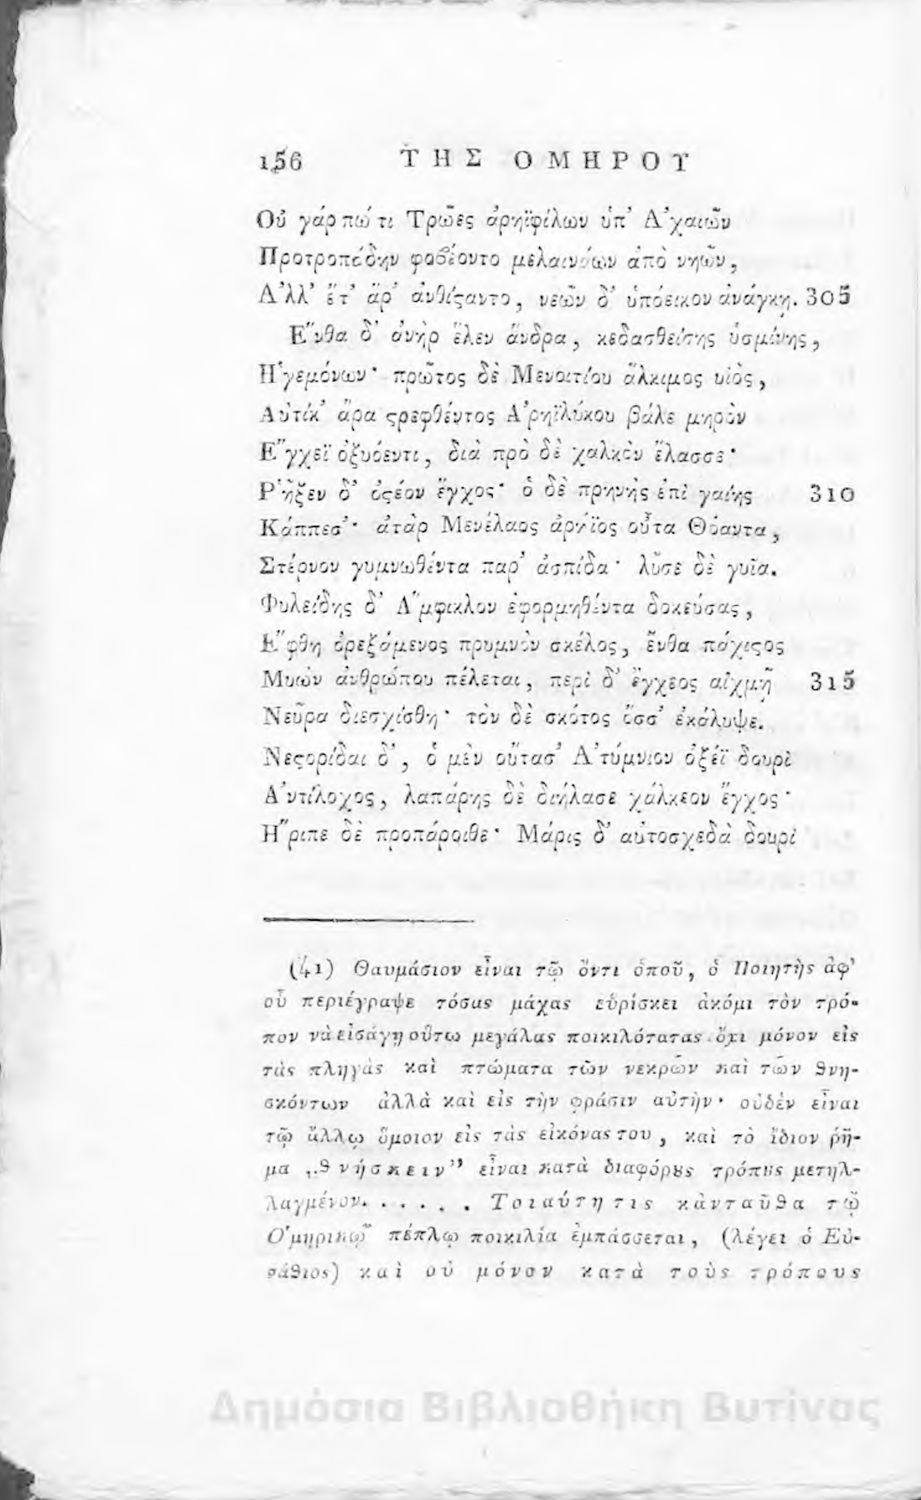 156 ΤΗΣ ΟΜΗΡΟΥ
Οὐ γάρ πώ τι Τρῶες ἀρηϊφίλων ὑπ’ Ἀχαιῶν
Προτροπάδην φοβέοντο μελαινάων ἀπὸ νηῶν,
Ἀλλ’ ἔτ’ ἄρ’ ἀνθίϛαντο, νεῶν δ’ ὑπόεικον ἀνάγκῃ. 305
Ἔνθα δ’ ἀνὴρ ἕλεν ἄνδρα, κεδασθείσης ὑσμίνης,
Ἡγεμόνων· πρῶτος δὲ Μενοιτίου ἄλκιμος υἱὸς,
Αὐτίκ’ ἄρα ϛρεφθέντος Ἀρηϊλύκου βάλε μηρὸν
Ἔγχεϊ ὀξυόεντι, διὰ πρὸ δὲ χαλκὸν ἔλασσε·
Ῥῆξεν δ’ ὀϛέον ἔγχος· ὁ δὲ πρηνὴς ἐπὶ γαίης 310
Κάππεσ’· ἀτὰρ Μενέλαος ἀρήϊος οὖτα Θόαντα,
Στέρνον γυμνωθέντα παρ’ ἀσπίδα· λῦσε δὲ γυῖα.
Φυλείδης δ’ Ἄμφικλον ἐφορμηθέντα δοκεύσας,
Ἔφθη ὀρεξάμενος πρυμνὸν σκέλος, ἔνθα πάχιϛος
Μυὼν ἀνθρώπου πέλεται, περὶ δ’ ἔγχεος αἰχμῇ 315
Νεῦρα διεσχίσθη· τὸν δὲ σκότος ὄσσ’ ἐκάλυψε.
Νεϛορίδαι δ’, ὁ μὲν οὔτασ’ Ἀτύμνιον ὀξέϊ δουρὶ
Ἀντίλοχος, λαπάρης δὲ διήλασε χάλκεον ἔγχος·
Ἤριπε δὲ προπάροιθε· Μάρις δ’ αὐτοσχεδὰ δουρὶ
(41) Θαυμάσιον εἶναι τῷ ὄντι ὁποῦ, ὁ Ποιητὴς ἀφ’
οὗ περιέγραψε τόσας μάχας εὑρίσκει ἀκόμι τὸν τρό-
πον νὰ εἰσάγῃ οὕτω μεγάλας ποικιλότατας ὄχι μόνον εἰς
τὰς πληγὰς καὶ πτώματα τῶν νεκρῶν καὶ τῶν θνη-
σκόντων ἀλλὰ καὶ εἰς τὴν φράσιν αὐτήν· οὐδὲν εἶναι
τῷ ἄλλῳ ὅμοιον εἰς τὰς εἰκόνας του, καὶ τὸ ἴδιον ῥῆ-
μα „θνήσκειν” εἶναι κατὰ διαφόρȣς τρόπȣς μετηλ-
λαγμένον. . . . . . Τοιαύτη τις κἀνταῦθα τῷ
Ὁμηρικῷ πέπλῳ ποικιλία ἐμπάσσεται, (λέγει ὁ Εὐ-
ϛάθιος) καὶ οὐ μόνον κατὰ τοὺς τρόπους
Δημόσια Βιβλιοθήκη Βυτίνας